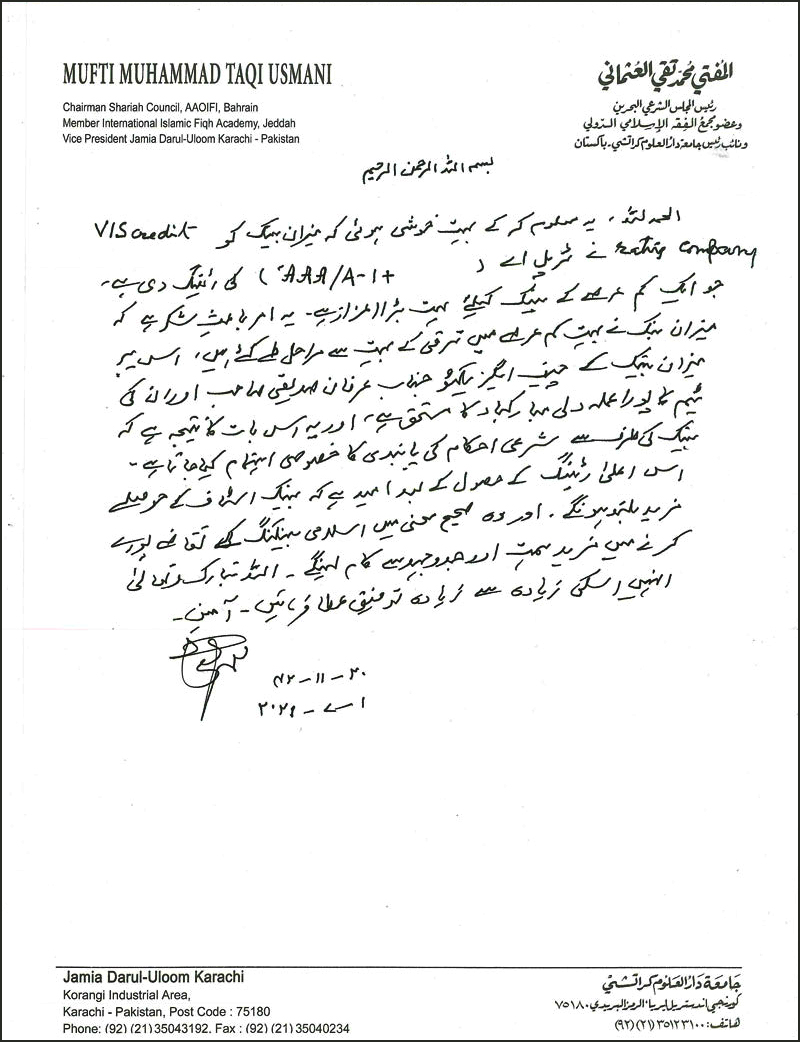 MUFTI MUHAMMAD TAQI USMANI
Chairman Shariah Council, AAOIFI, Bahrain
Member International Islamic Fiqh Academy, Jeddah
Vice President Jamia Darul-Uloom Karachi - Pakistan
المفتي محمد تقي العثماني
رئيس المجلس الشرعي البحرين
وعضو مجمع الفقه الإسلامي الدولي
ونائب رئيس جامعة دار العلوم كراتشي - باكستان
بسم اللہ الرحمن الرحیم
الحمد للہ، یہ معلوم کر کے بہت خوشی ہوئی کہ میزان بینک کو VIS credit
rating company نے ٹرپل اے (
AAA/A-1+) کی رٹینگ دی ہے۔
جو ایک کم عرصے کے بینک کیلئے بہت بڑا اعزاز ہے۔ یہ امر باعثِ شکر ہے کہ
میزان بینک نے بہت کم عرصے میں ترقی کے بہت سے مراحل طے کئے ہیں، اس پر
میزان بینک کے چیف ایگزیکٹیو جناب عرفان صدیقی صاحب اور ان کی
ٹیم کا پورا عملہ دلی مبارکباد کا مستحق ہے، اور یہ اس بات کا نتیجہ ہے کہ
بینک کی طرف سے شرعی احکام کی پابندی کا خصوصی اہتمام کیا جاتا ہے۔
اس اعلیٰ رٹینگ کے حصول کے بعد امید ہے کہ بینک اسٹاف کے حوصلے
مزید بلند ہونگے۔ اور وہ صحیح معنی میں اسلامی بینکنگ کے تقاضے پورے
کرنے میں مزید ہمت اور جدوجہد سے کام لینگے۔ اللہ تبارک وتعالیٰ
انہیں اسکی زیادہ سے زیادہ توفیق عطا فرمائیں۔ آمین۔
۲۰-۱۱-۴۲
۱-۷-۲۰۲۱
Jamia Darul-Uloom Karachi
Korangi Industrial Area,
Karachi - Pakistan, Post Code : 75180
Phone: (92) (21) 35043192, Fax : (92) (21) 35040234
جامعة دار العلوم كراتشي
كورنجي اندستريل ايريا، الرمز البريدي ٧٥١٨٠
هاتف: ٣٥١٢٣١٠٠ (٢١) (٩٢)